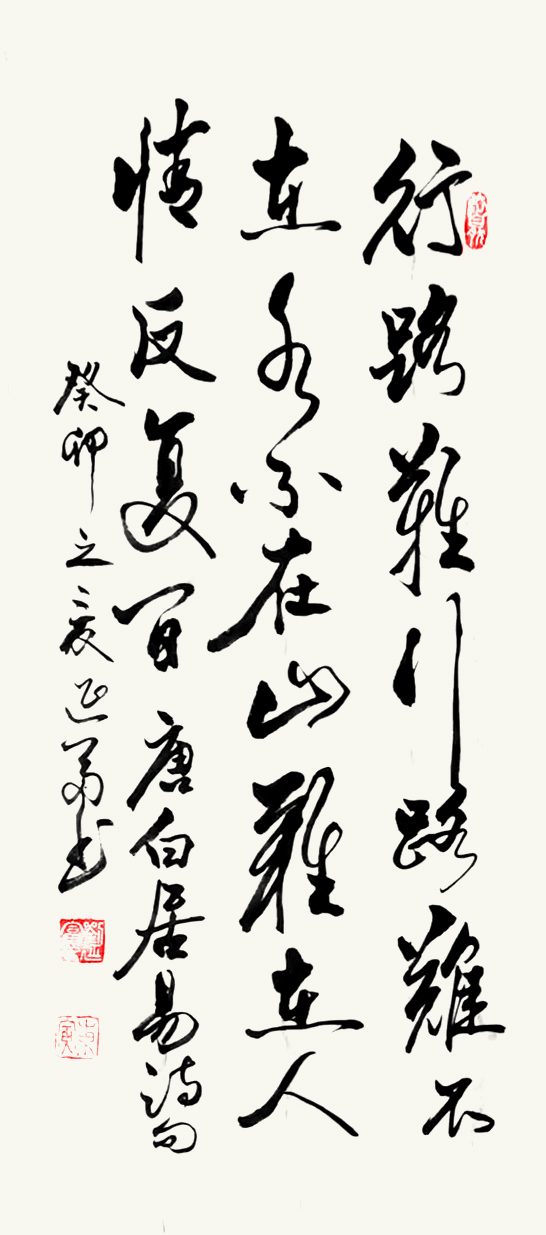 行路難行路難不
在水不在山難在人
情反复間 唐白居易詩句
癸卯之夏延书